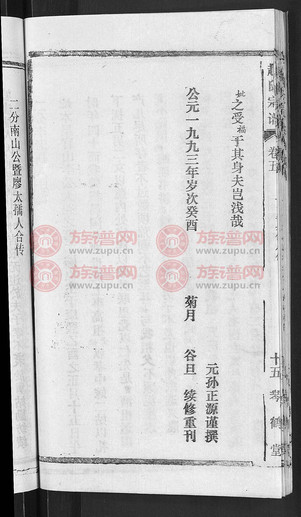 赵氏宗谱 卷五
十五 琴鹤堂
之受福于其身夫岂浅哉
元孙正源谨撰
公元一九九三年岁次癸酉 菊月 谷旦 续修重刊
二分南山公暨廖太孺人合传
族谱网
www.zupu.cn
族谱网
www.zupu.cn
族谱网
www.zupu.cn
族谱网
www.zupu.cn